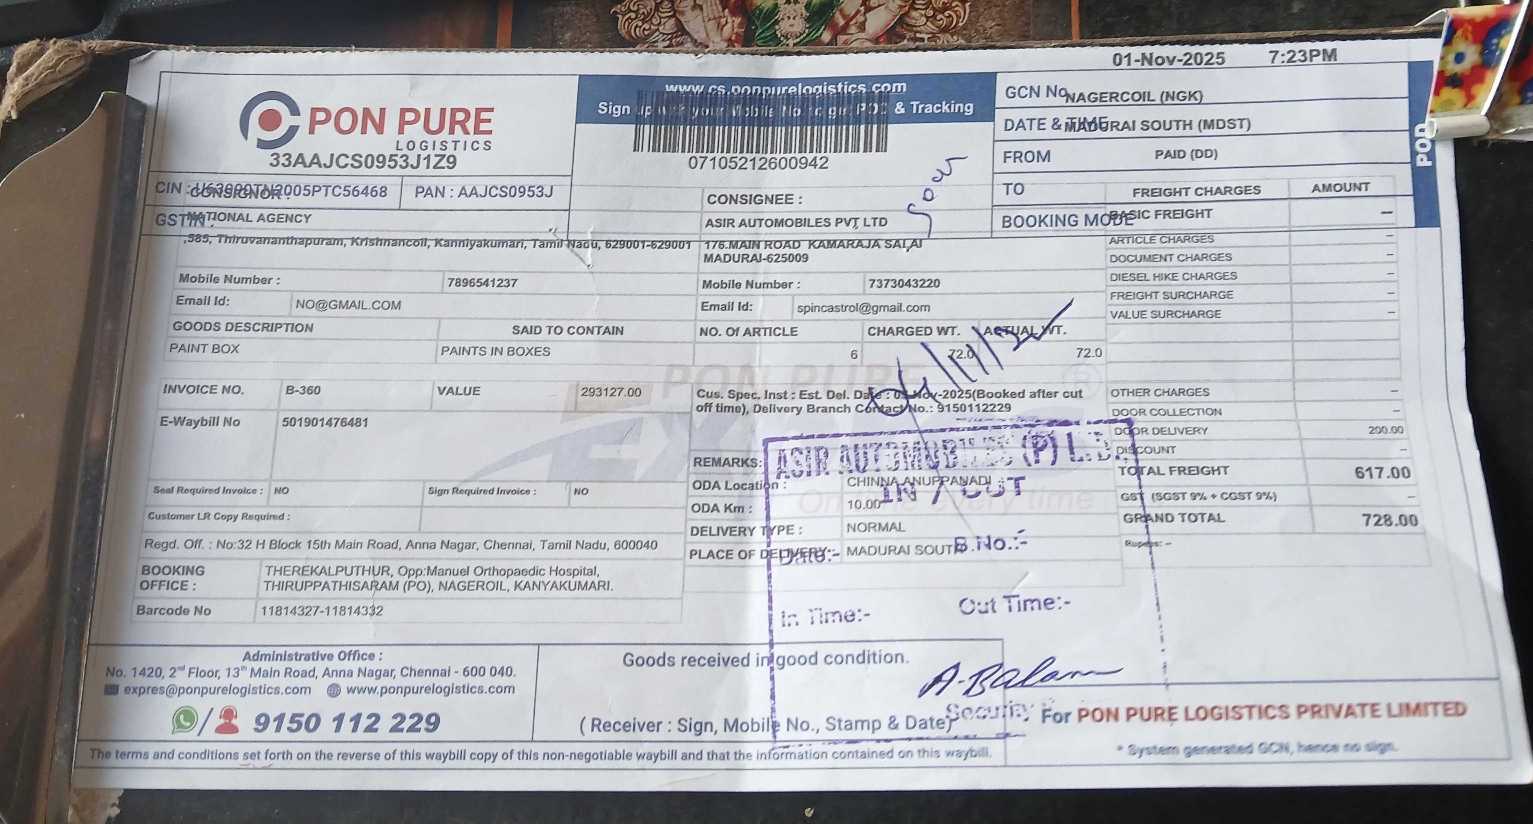 01-Nov-2025 7:23PM
PON PURE
LOGISTICS
33AAJCS0953J1Z9
www.cs.ponpurelogistics.com
Sign up with your Mobile No to get POD & Tracking
07105212600942
GCN No NAGERCOIL (NGK)
DATE & TIME MADURAI SOUTH (MDST)
FROM PAID (DD)
TO
BOOKING MODE
POD
CIN : U63090TN2005PTC56468 PAN : AAJCS0953J
GSTIN :
CONSIGNOR :
NATIONAL AGENCY
,585, Thiruvananthapuram, Krishnancoil, Kanniyakumari, Tamil Nadu, 629001-629001
Mobile Number : 7896541237
Email Id: NO@GMAIL.COM
CONSIGNEE :
ASIR AUTOMOBILES PVT LTD
176.MAIN ROAD KAMARAJA SALAI
MADURAI-625009
Mobile Number : 7373043220
Email Id: spincastrol@gmail.com
FREIGHT CHARGES AMOUNT
BASIC FREIGHT –
ARTICLE CHARGES –
DOCUMENT CHARGES –
DIESEL HIKE CHARGES –
FREIGHT SURCHARGE –
VALUE SURCHARGE –
OTHER CHARGES –
DOOR COLLECTION –
DOOR DELIVERY 200.00
DISCOUNT –
TOTAL FREIGHT 617.00
GST (SGST 9% + CGST 9%) –
GRAND TOTAL 728.00
Rupees: –
GOODS DESCRIPTION SAID TO CONTAIN NO. Of ARTICLE CHARGED WT. ACTUAL WT.
PAINT BOX PAINTS IN BOXES 6 72.0 72.0
INVOICE NO. B-360 VALUE 293127.00
E-Waybill No 501901476481
Cus. Spec. Inst : Est. Del. Date : -Nov-2025(Booked after cut
off time), Delivery Branch Contact No.: 9150112229
REMARKS:
ODA Location : CHINNA ANUPPANADI
ODA Km : 10.00
DELIVERY TYPE : NORMAL
PLACE OF DELIVERY: MADURAI SOUTH
Seal Required Invoice : NO Sign Required Invoice : NO
Customer LR Copy Required :
Regd. Off. : No:32 H Block 15th Main Road, Anna Nagar, Chennai, Tamil Nadu, 600040
BOOKING OFFICE : THEREKALPUTHUR, Opp:Manuel Orthopaedic Hospital,
THIRUPPATHISARAM (PO), NAGEROIL, KANYAKUMARI.
Barcode No 11814327-11814332
ASIR AUTOMOBILES (P) LTD.
IN / OUT
Date:- B.No.:-
In Time:- Out Time:-
Security
A. Balam
Administrative Office :
No. 1420, 2nd Floor, 13th Main Road, Anna Nagar, Chennai - 600 040.
expres@ponpurelogistics.com www.ponpurelogistics.com
9150 112 229
Goods received in good condition.
( Receiver : Sign, Mobile No., Stamp & Date)
For PON PURE LOGISTICS PRIVATE LIMITED
* System generated GCN, hence no sign.
The terms and conditions set forth on the reverse of this waybill copy of this non-negotiable waybill and that the information contained on this waybill.